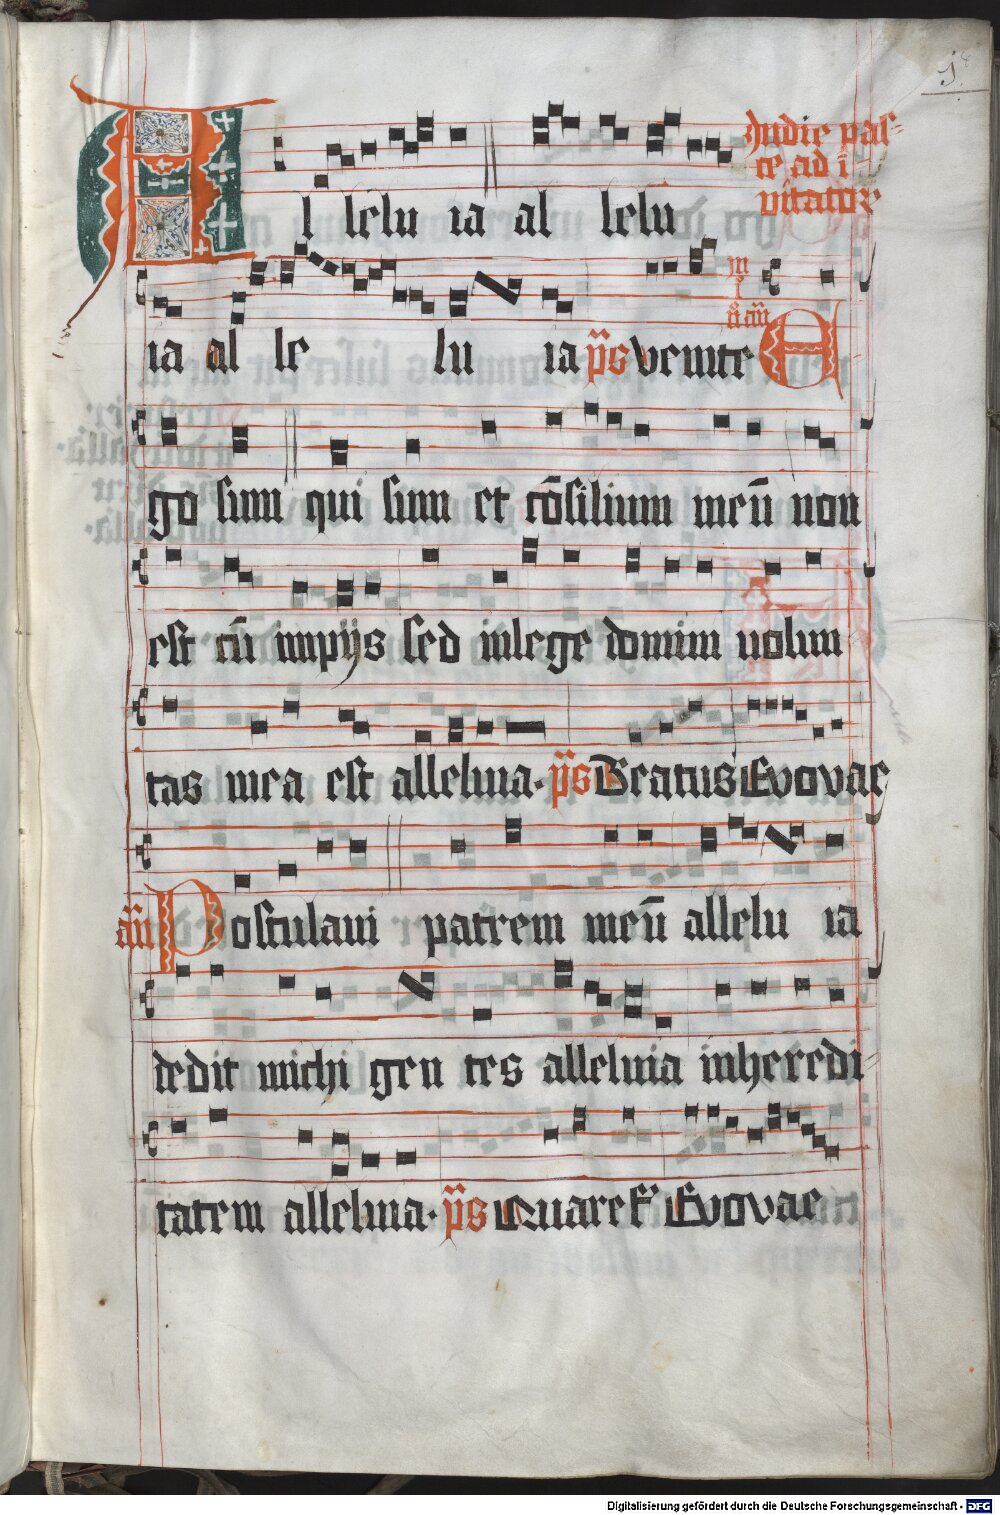 Jn die pas=
ce ad ī
uitator̄
Al lelu ia al lelu
ia al le lu ia p̄s Venite
in
i
n̄ an̄
E
go sum qui sum et cōsilium meū non
est cū impijs sed inlege domini uolun
tas mea est alleluia· p̄s Beatus Evovae
an̄ Postulaui patrem meū allelu ia
dedit michi gen tes alleluia inheredi
tatem alleluia· p̄s Quare f̄ Evovae
Digitalisierung gefördert durch die Deutsche Forschungsgemeinschaft - DFG